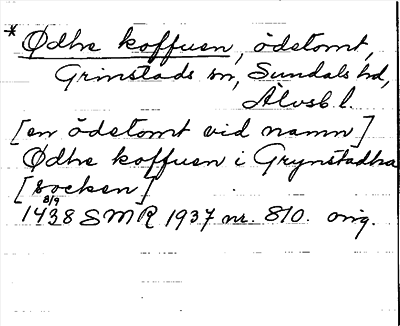 * Ødhe koffuen, ödetomt,
Grinstads sn, Sundals hd,
Älvsb. l.
[en ödetomt vid namn]
Ødhe koffuen i Grynstadha
[socken]
8/9
1438 SMR 1937 nr. 810. orig.